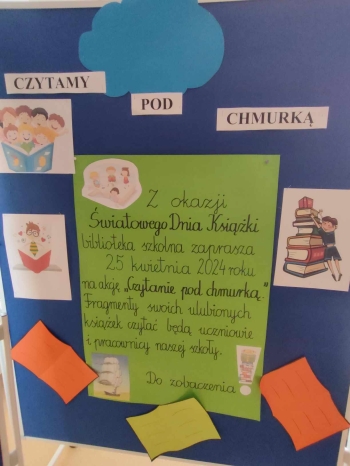 CZYTAMY
POD
CHMURKĄ
Z okazji
Światowego Dnia Książki
biblioteka szkolna zaprasza
25 kwietnia 2024 roku
na akcję „Czytanie pod chmurką."
Fragmenty swoich ulubionych
książek czytać będą uczniowie
i pracownicy naszej szkoły.
Do zobaczenia